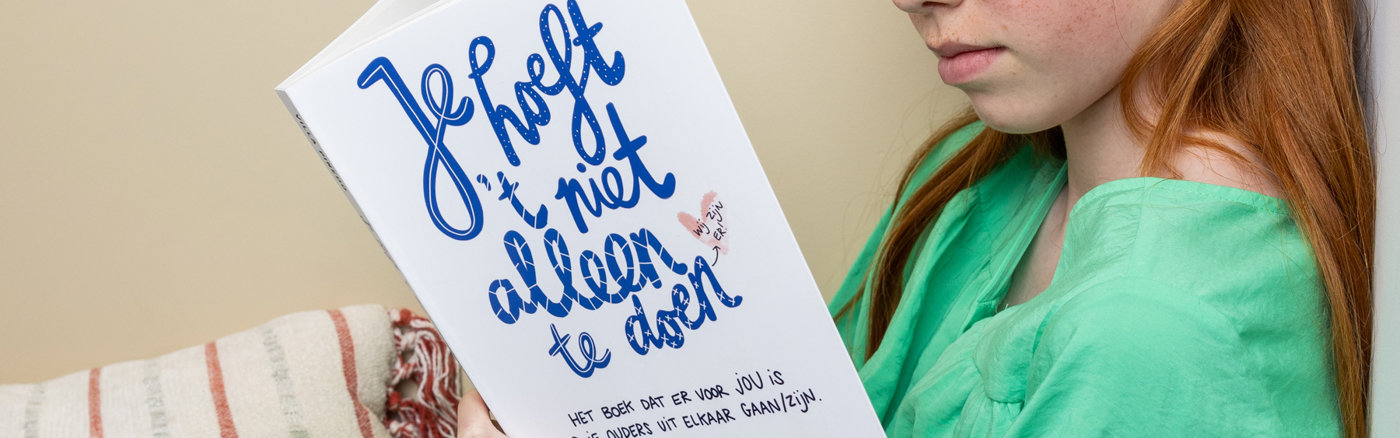 Je hoeft
't niet
alleen
te doen
wij zijn
ER!
HET BOEK DAT ER VOOR JOU IS
JE OUDERS UIT ELKAAR GAAN/ZIJN.